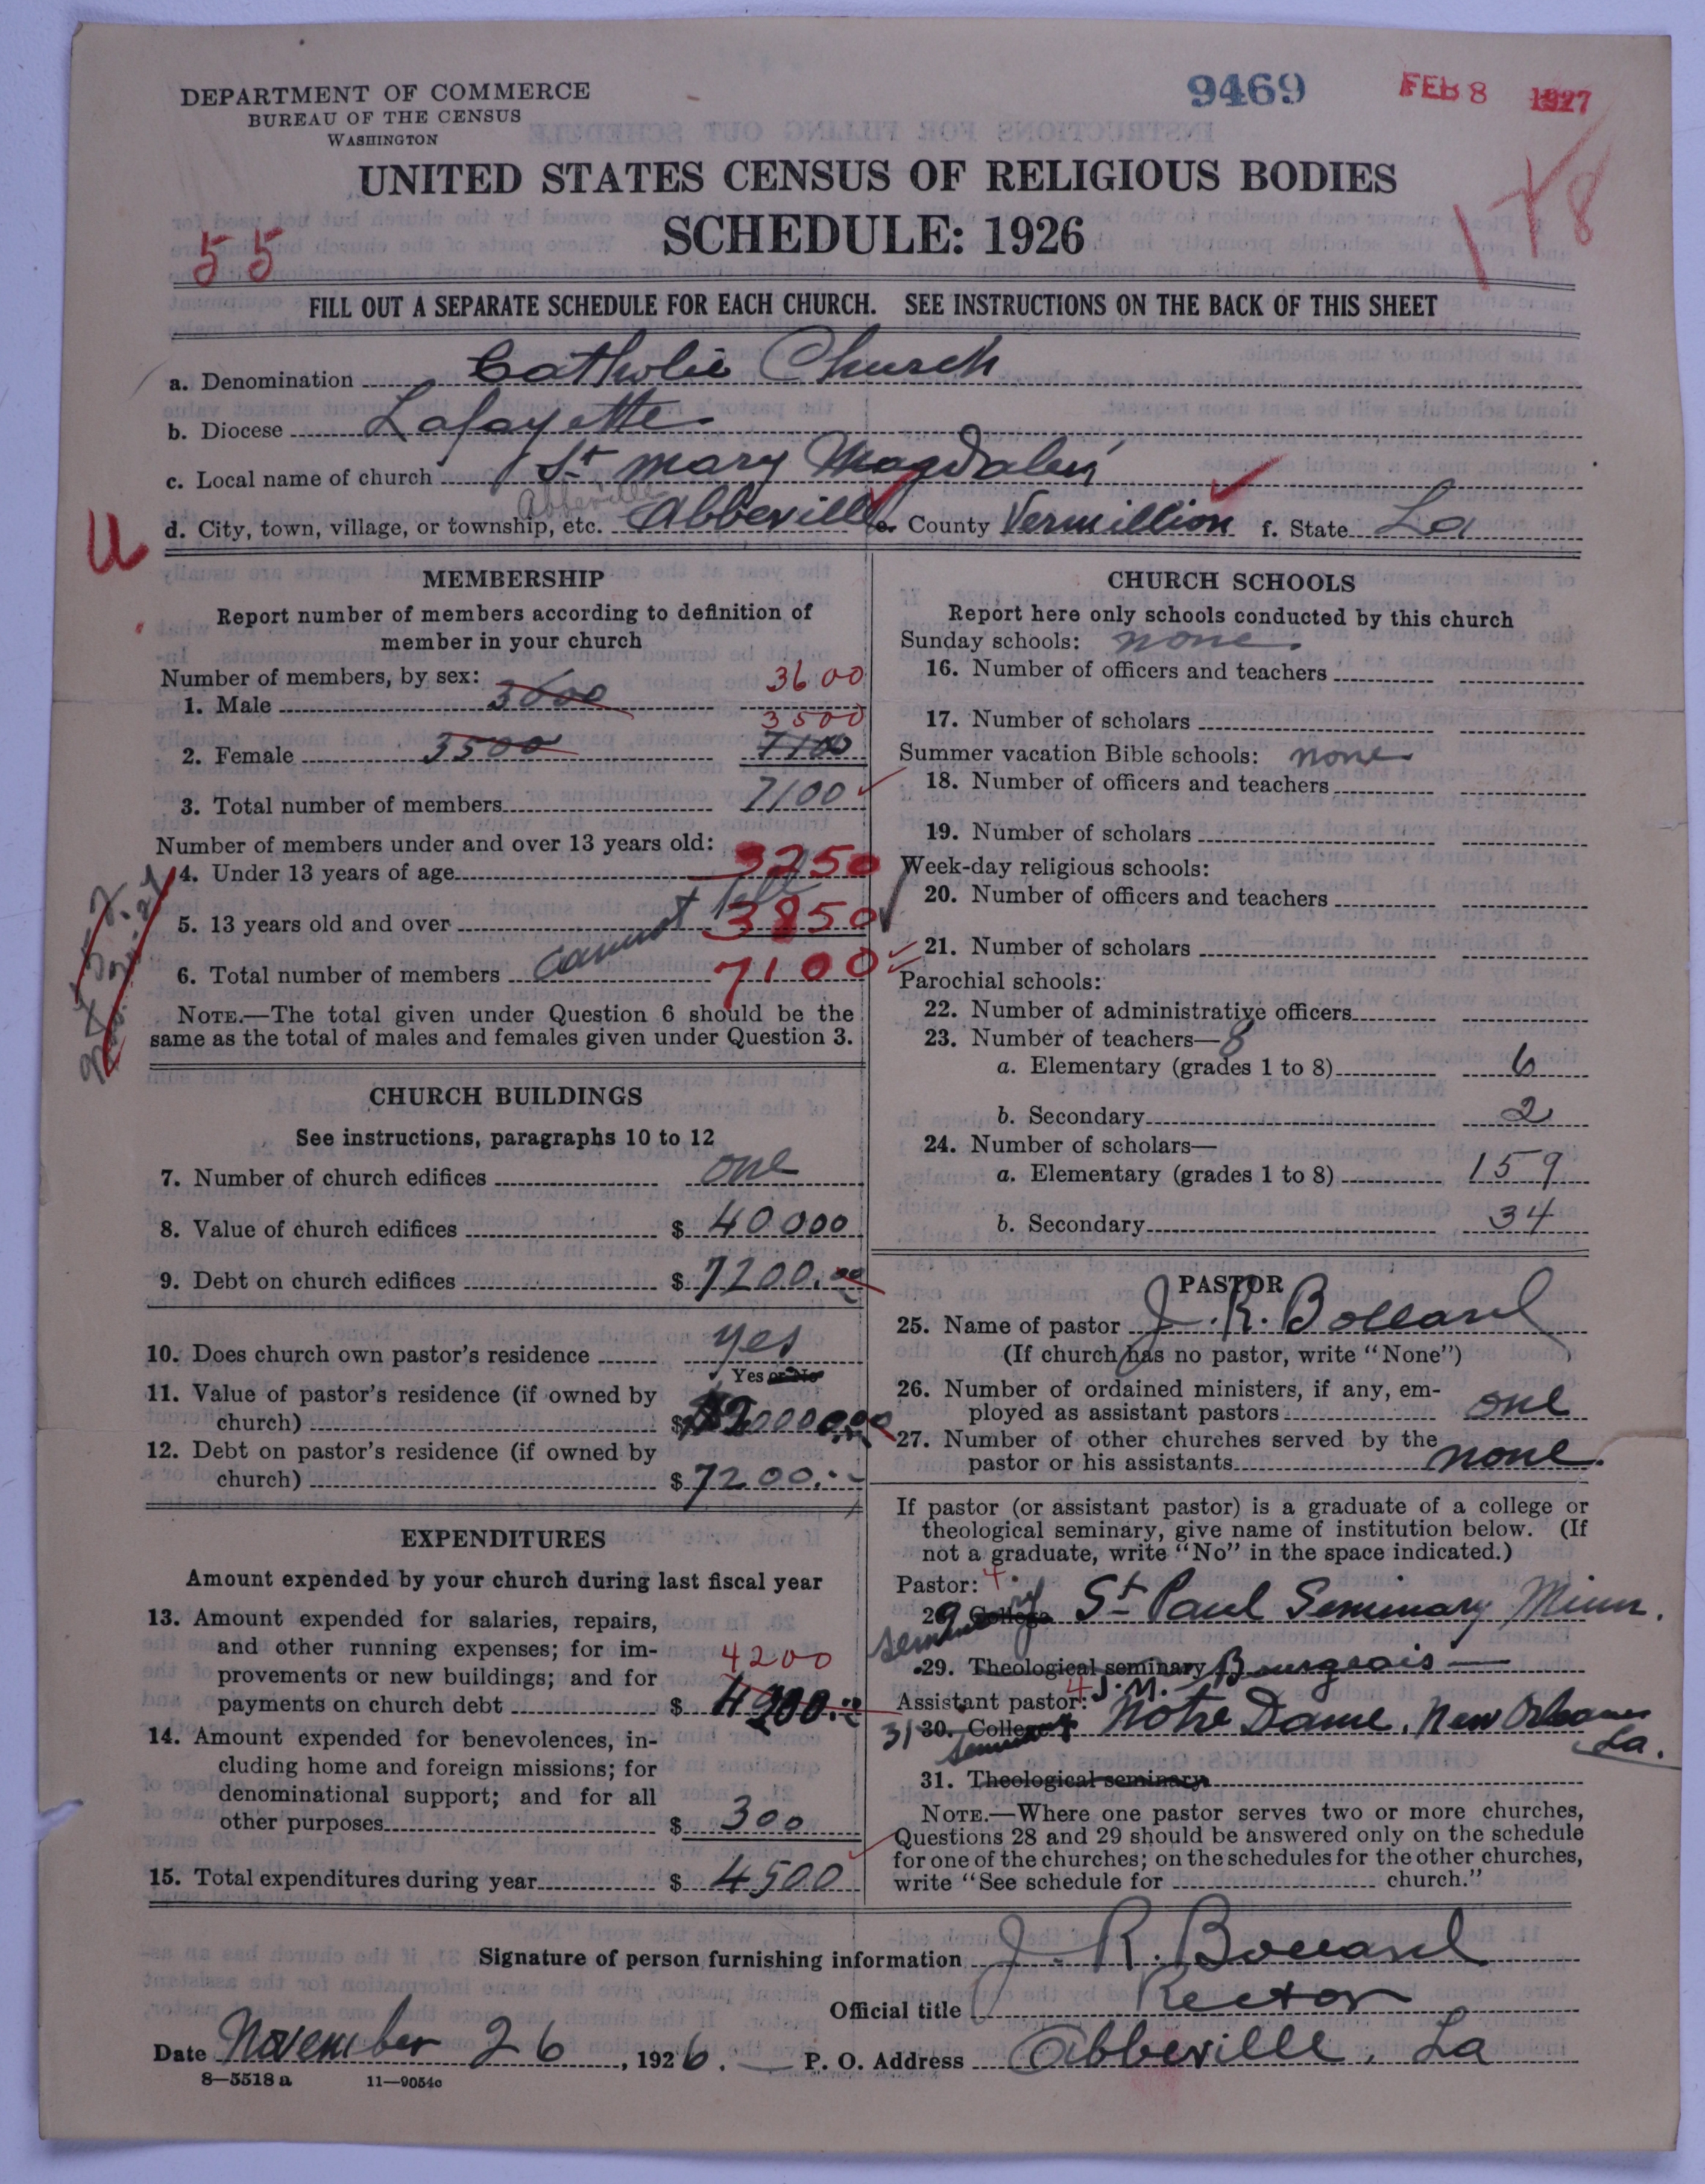 DEPARTMENT OF COMMERCE
BUREAU OF THE CENSUS
WASHINGTON
9469
FEB 8 1927
UNITED STATES CENSUS OF RELIGIOUS BODIES
SCHEDULE: 1926
55
178
FILL OUT A SEPARATE SCHEDULE FOR EACH CHURCH. SEE INSTRUCTIONS ON THE BACK OF THIS SHEET
a. Denomination Catholic Church
b. Diocese Lafayette
c. Local name of church St Mary Magdalen
Abbeville
d. City, town, village, or township, etc. Abbeville e. County Vermillion f. State La
U
MEMBERSHIP
Report number of members according to definition of
member in your church
Number of members, by sex:
1. Male 3600 3600
2. Female 3500 3500
7100
3. Total number of members 7100
Number of members under and over 13 years old:
4. Under 13 years of age 3250
5. 13 years old and over 3850
6. Total number of members cannot tell 7100
NOTE.—The total given under Question 6 should be the
same as the total of males and females given under Question 3.
CHURCH BUILDINGS
See instructions, paragraphs 10 to 12
7. Number of church edifices one
8. Value of church edifices $ 40000
9. Debt on church edifices $ 7200.00
10. Does church own pastor's residence yes
Yes or No
11. Value of pastor's residence (if owned by
church) $
12. Debt on pastor's residence (if owned by
church) $ 7200.--
EXPENDITURES
Amount expended by your church during last fiscal year
13. Amount expended for salaries, repairs,
and other running expenses; for im-
provements or new buildings; and for 4200
payments on church debt $
14. Amount expended for benevolences, in-
cluding home and foreign missions; for
denominational support; and for all
other purposes $ 300
15. Total expenditures during year $ 4500
CHURCH SCHOOLS
Report here only schools conducted by this church
Sunday schools: none
16. Number of officers and teachers
17. Number of scholars
Summer vacation Bible schools: none
18. Number of officers and teachers
19. Number of scholars
Week-day religious schools:
20. Number of officers and teachers
21. Number of scholars
Parochial schools:
22. Number of administrative officers
23. Number of teachers— 8
a. Elementary (grades 1 to 8) 6
b. Secondary 2
24. Number of scholars—
a. Elementary (grades 1 to 8) 159
b. Secondary 34
PASTOR
25. Name of pastor J. R. Bollard
(If church has no pastor, write "None")
26. Number of ordained ministers, if any, em-
ployed as assistant pastors one
27. Number of other churches served by the
pastor or his assistants none.
If pastor (or assistant pastor) is a graduate of a college or
theological seminary, give name of institution below. (If
not a graduate, write "No" in the space indicated.)
Pastor: 4.
29 College St Paul Seminary Minn.
seminary
29. Theological seminary Bourgeois —
Assistant pastor: 4 J. M.
31 30. College Notre Dame, New Orleans
Seminary La.
31. Theological seminary
NOTE.—Where one pastor serves two or more churches,
Questions 28 and 29 should be answered only on the schedule
for one of the churches; on the schedules for the other churches,
write "See schedule for church."
Signature of person furnishing information J. R. Bollard
Official title Rector
Date November 26, 1926. P. O. Address Abbeville, La
8—5518 a 11—9054c